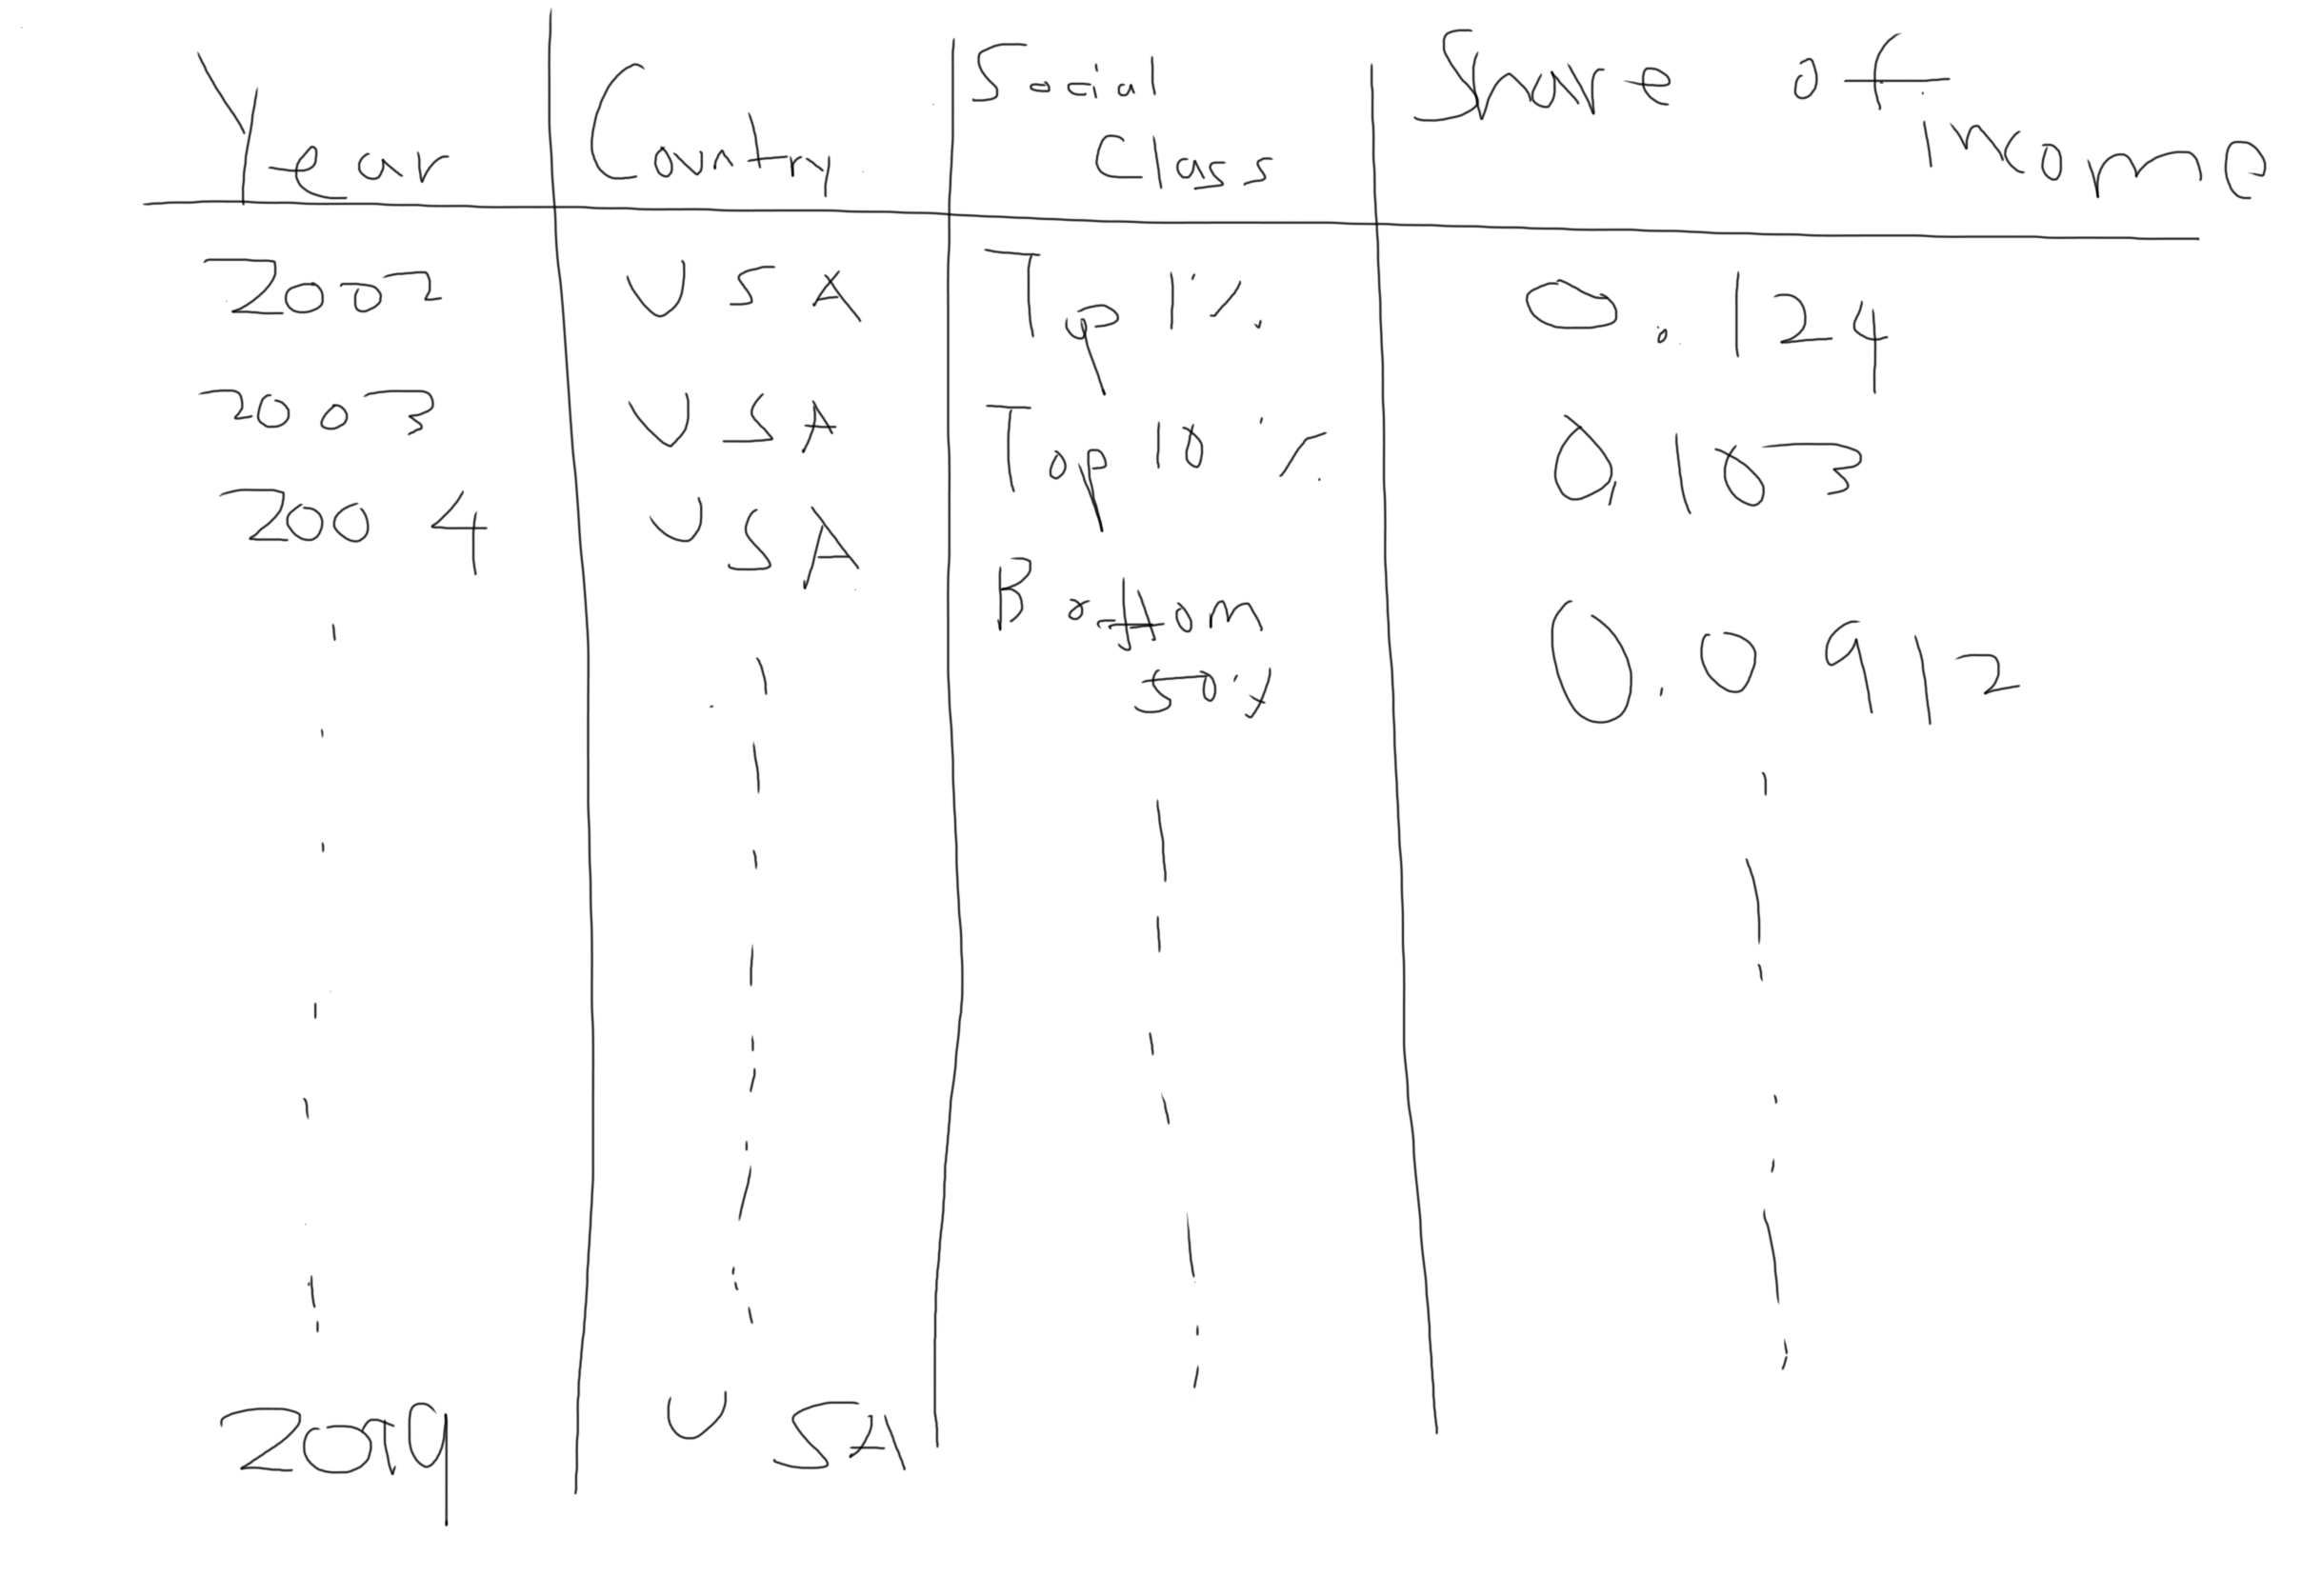 Year Country Social Class Share of income
2002 USA Top 1% 0.124
2003 USA Top 10% 0.103
2004 USA Bottom 50% 0.0912
2019 USA